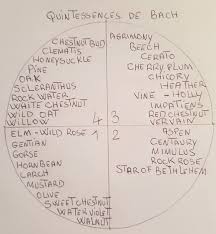 QUINTESSENCES DE BACH
CHESTNUT BUD
CLEMATIS
HONEYSUCKLE
PINE
OAK
SCLERANTHUS
ROCK WATER
WHITE CHESTNUT
WILD OAT
WILLOW
4
AGRIMONY
BEECH
CERATO
CHERRY PLUM
CHICORY
HEATHER
VINE - HOLLY
IMPATIENS
RED CHESTNUT
VERVAIN
3
ELM - WILD ROSE
1
GENTIAN
GORSE
HORNBEAN
LARCH
MUSTARD
OLIVE
SWEET CHESTNUT
WATER VIOLET
WALNUT
2
ASPEN
CENTAURY
MIMULUS
ROCK ROSE
STAR OF BETHLEHEM